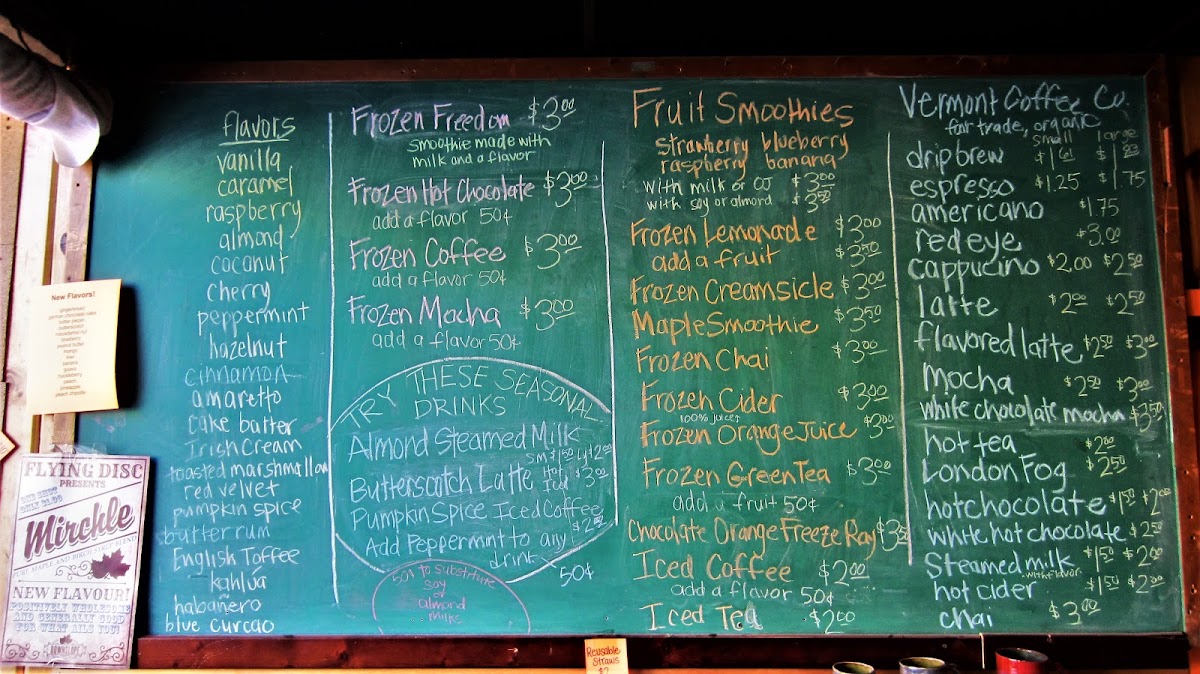 flavors
vanilla
caramel
raspberry
almond
coconut
cherry
peppermint
hazelnut
cinnamon
amaretto
cake batter
Irish Cream
toasted marshmallow
red velvet
pumpkin spice
butter rum
English Toffee
kahlua
habanero
blue curcao
Frozen Freedom $3.00
smoothie made with
milk and a flavor
Frozen Hot Chocolate $3.00
add a flavor 50¢
Frozen Coffee $3.00
add a flavor 50¢
Frozen Mocha $3.00
add a flavor 50¢
TRY THESE SEASONAL
DRINKS
Almond Steamed Milk
SM $1.50 LG $2.00
Butterscotch Latte Hot $3.00
Pumpkin Spice Iced Coffee
$2.00
Add Peppermint to any
drink 50¢
50¢ to substitute
soy
or
almond
milks
Fruit Smoothies
strawberry blueberry
raspberry banana
with milk or OJ $3.00
with soy or almond $3.50
Frozen Lemonade $3.00
add a fruit $3.50
Frozen Creamsicle $3.00
Maple Smoothie $3.50
Frozen Chai $3.00
Frozen Cider $3.00
100% juice!
Frozen Orange Juice $3.00
Frozen Green Tea $3.00
add a fruit 50¢
Chocolate Orange Freeze Ray $3.50
Iced Coffee $2.00
add a flavor 50¢
Iced Tea $2.00
Vermont Coffee Co.
fair trade, organic
small large
drip brew
espresso $1.25 $1.75
americano $1.75
red eye $3.00
cappucino $2.00 $2.50
latte $2.00 $2.50
flavored latte $2.50 $3.00
mocha $2.50 $3.00
white chocolate mocha $3.50
hot tea $2.00
London Fog $2.50
hot chocolate $1.50 $2.00
white hot chocolate $2.50
Steamed milk $1.50 $2.00
with flavor
hot cider $1.50 $2.00
chai $3.00
New Flavors!
gingerbread
german chocolate cake
butter pecan
butterscotch
macadamia nut
blueberry
peanut butter
mango
kiwi
banana
guava
huckleberry
peach
pineapple
peach chipotle
FLYING DISC
PRESENTS
Mirchle
PURE MAPLE AND BIRCH SYRUP BLEND
NEW FLAVOUR!
POSITIVELY WHOLESOME
AND GENERALLY GOOD
FOR WHAT AILS YOU!
Reusable
Straws
$2